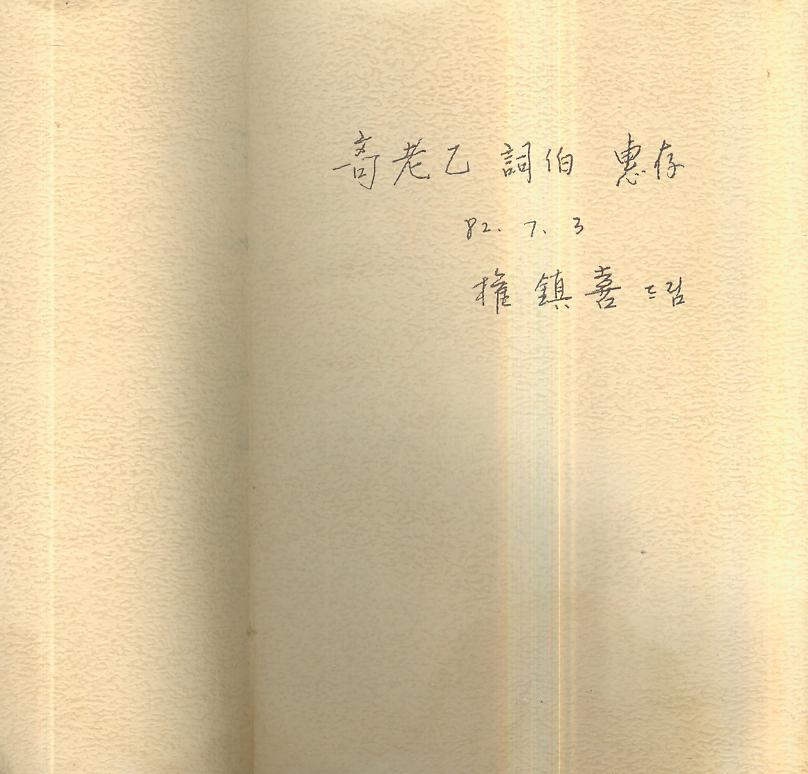 奇老乙 詞伯 惠存
82. 7. 3
權 鎮 喜 드림